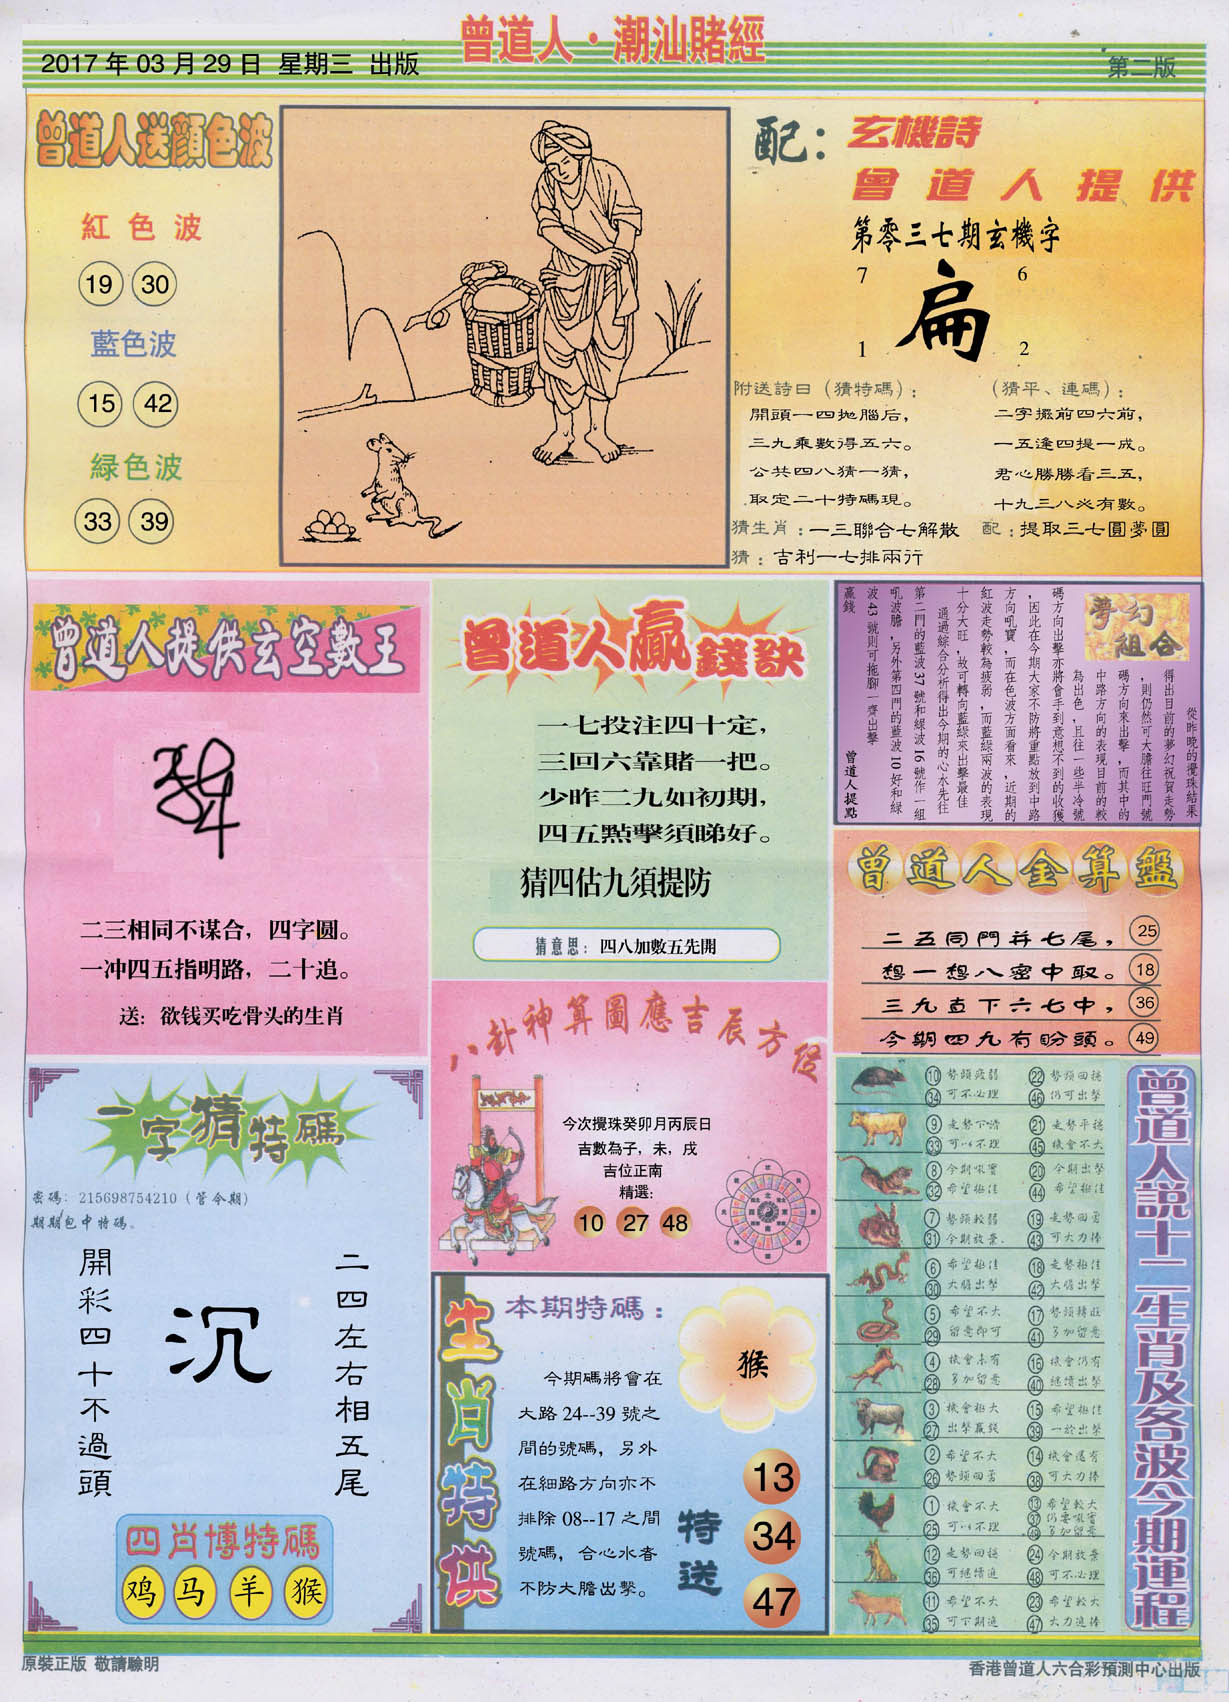 曾道人·潮汕賭經
2017 年 03 月 29 日 星期三 出版
第二版
曾道人送顏色波
紅色波
19 30
藍色波
15 42
緑色波
33 39
配：玄機詩
曾道人提供
第零三七期玄機字
7 6
扁
1 2
附送詩曰（猜特碼）：
開頭一四拋腦后，
三九乘數得五六。
公共四八猜一猜，
取定二十特碼現。
（猜平、連碼）：
二字擺前四六前，
一五逢四提一成。
君心勝勝看三五，
十九三八必有數。
猜生肖：一三聯合七解散
配：提取三七圓夢圓
猜：吉利一七排兩行
曾道人提供玄空數王
二三相同不谋合，四字圆。
一冲四五指明路，二十追。
送：欲钱买吃骨头的生肖
曾道人贏錢訣
一七投注四十定，
三回六靠賭一把。
少昨二九如初期，
四五點擊須睇好。
猜四估九須提防
猜意思：四八加數五先開
夢幻
組合
從昨晚的攪珠結果
得出目前的夢幻祝賀走勢
，則仍然可大膽往旺門號
碼方向來出擊，而其中的
中路方向的表現目前的較
為出色，且往一些半冷號
碼方向出擊亦將會手到意想不到的收獲
，因此在今期大家不防將重點放到中路
方向吼寶，而在色波方面看來，近期的
紅波走勢較為疲弱，而藍綠兩波的表現
十分大旺，故可轉向藍綠來出擊最佳
通過綜合分析得出今期的心水先往
第二門的藍波 37 號和綠波 16 號作一組
吼波膽，另外第四門的藍波 10 好和綠
波 43 號則可拖腳一齊出擊
贏錢
曾道人提點
曾道人金算盤
二五同門并七尾， 25
想一想八密中取。 18
三九直下六七中， 36
今期四九有盼頭。 49
八卦神算圖應吉辰方位
今次攪珠癸卯月丙辰日
吉數為子，未，戌
吉位正南
精選：
10 27 48
一字猜特碼
密碼：215698754210（管今期）
期期包中特碼。
開彩四十不過頭
沉
二四左右相五尾
四肖博特碼
鸡 马 羊 猴
生肖特供
本期特碼：
猴
今期碼將會在
大路 24--39 號之
間的號碼，另外
在細路方向亦不
排除 08--17 之間
號碼，合心水者
不防大膽出擊。
特送
13
34
47
曾道人説十二生肖及各波今期運程
10 勢頭疲弱 22 勢頭回穩
34 可不必理 46 仍可出擊
9 走勢下滑 21 走勢平穩
33 可以不理 45 機會不大
8 今期吼寶 20 今期出擊
32 希望極佳 44 希望極佳
7 勢頭較弱 19 走勢回勇
31 今期放棄 43 可大力捧
6 希望極佳 18 走勢極佳
30 大膽出擊 42 大膽出擊
5 希望不大 17 勢頭轉旺
29 留意即可 41 多加留意
4 機會未有 16 機會仍有
28 多加留意 40 繼續出擊
3 機會極大 15 希望極佳
27 出擊贏錢 39 一於出擊
2 希望不大 14 機會還有
26 勢頭回勇 38 可大力捧
1 機會不大 13 希望較大
25 可以不理 37 仍要吼實
49 多加留意
12 走勢回穩 24 今期放棄
36 可繼續追 48 可不必理
11 希望不大 23 希望較大
35 可下期追 47 大力追捧
原裝正版 敬請驗明
香港曾道人六合彩預測中心出版